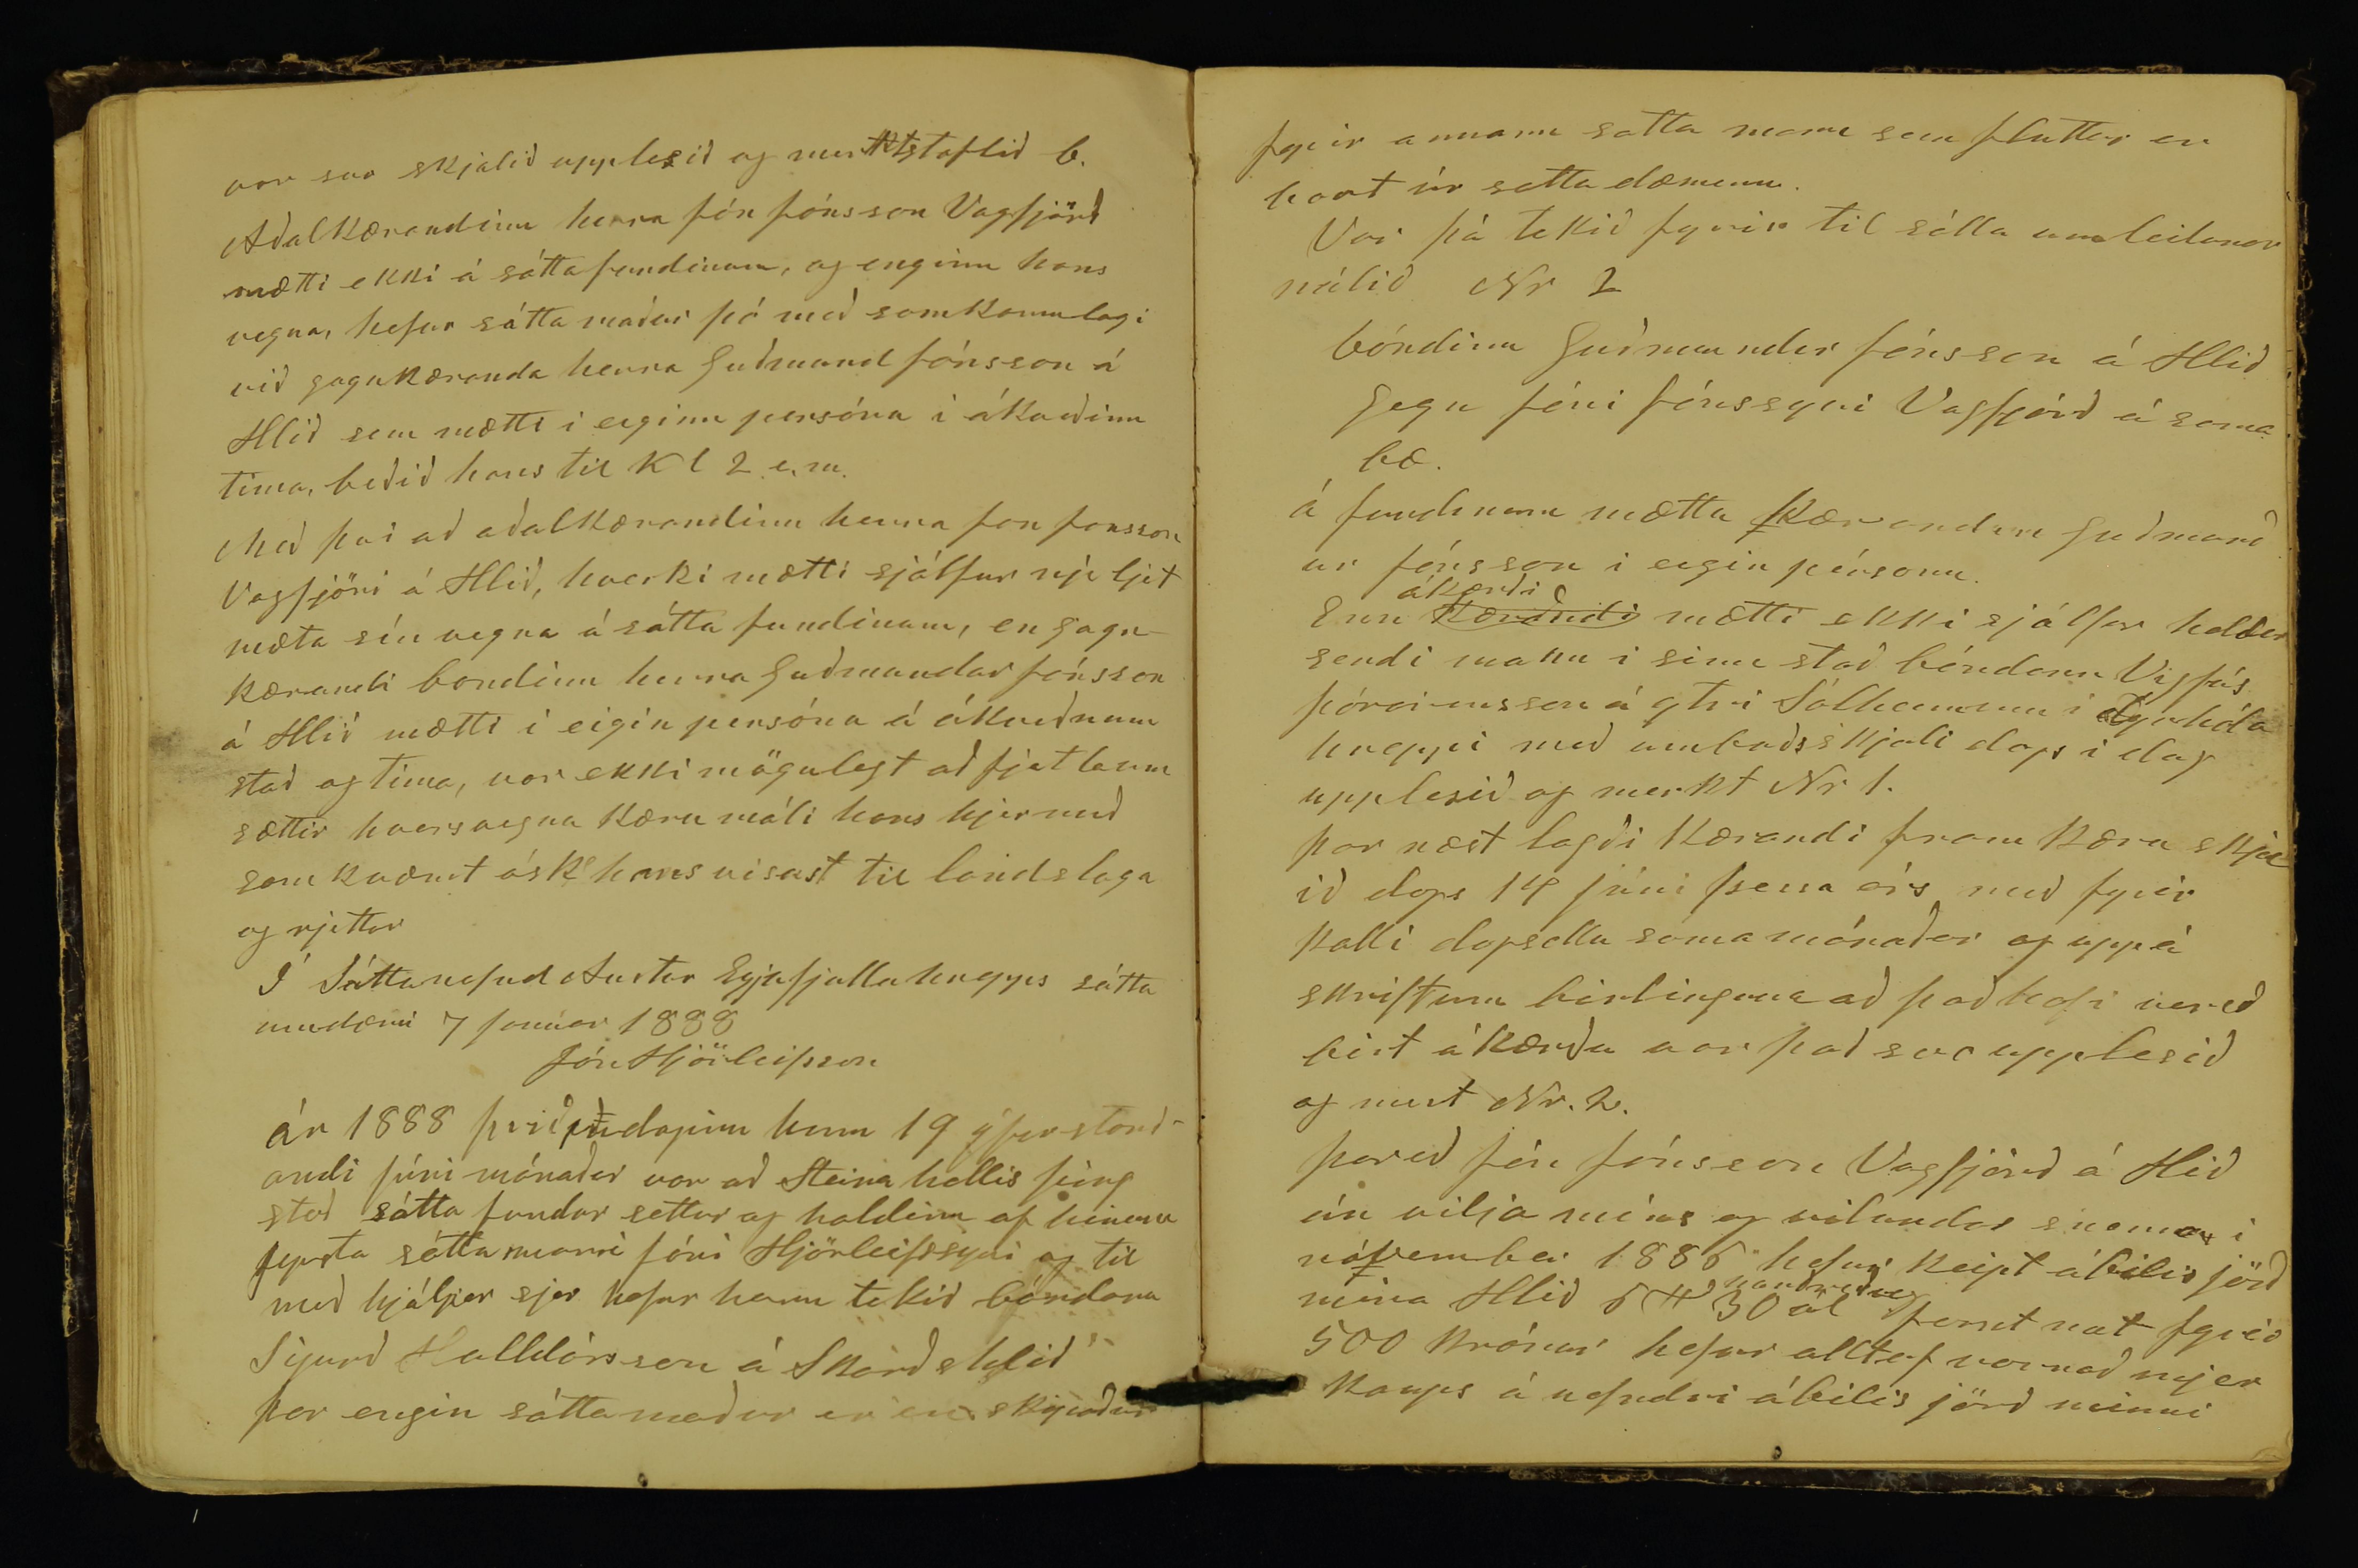 var svo skjalið upplesið og merkt staflið b.
Aðalkærandinn herra Jón Jónsson Vagfjörð
mætti ekki á sáttafundinum, og enginn hans
vegna, hefur sáttamaður þó með samkomulagi
við gagnkæranda herra Guðmund Jónsson á
Hlíð sem mætti í eiginn persónu í ákveðinn
tíma, beðið hans til Kl 2 e.m.
Með því að aðalkærandinn herra Jon Jonsson
Vagfjörð á Hlíð, hverki mætti sjálfur nje ljet
mæta sín vegna á sátta fundinum, en gagn-
kærandi bondinn herra Guðmundar Jónsson
á Hlíð mætti í eigin persónu á ákveðnum
stað og tíma, var ekki mögulegt að
sættir hversvegna kæru máli hans hjermeð
samkvæmt ósk hans visast til landslaga
og rjettar
Í Sáttanefnd Austur Eyjafjallahrepps sátta
umdæmi 7 Januar 1888
Jón Hjörleifsson
ár 1888 þriðjudaginn hinn 19 yfirstand-
andi júní mánaðar var að Steina hellis þing
stað sátta fundur settur og haldinn af hinum
fyrsta sáttamanni Jóni Hjörleifssyni og til
með hjálpar sjer hefur hann tekið bóndann
Sigurð Halldórsson á Skarðshlíð
þar engin sáttamaður er en skipaður
fyrir annann satta mann sem fluttur er
bort úr satta dæmenu.
Var þá tekið fyrir til sátta umleitanar
málið Nr 1
bóndinn Guðmundur Jónsson á Hlíð
Gegn Jóni Jónssyni Vagfjörð á sama
bæ.
á fundinum mætti kærandinn Guðmund
ur Jónsson í eigin persónu.
ákærdi
Enn kærandi mætti ekki sjálfur heldur
sendi mann í sinn stað bóndann Vigfús
Þórarinsson á ytri Sólheimum í Dyrhóla
hreppi með umboðsskjali dags í dag
upplesið og merkt Nr 1.
þar næst lagði kærandi fram kæru skjal
ið dags 14 júni þessa árs með fyrir
kalli dagsettu sama mánaðar og uppá
skriftum birtingana að það hafi verið
birt ákærðu var það svo upplesið
og mert Nr. 2.
þareð Jón Jónsson Vagfjörð á Hlíð
án vilja míns og vitundar snemma í
november 1886 hefur keipt ábilis jörð
hundruð
mína Hlíð 30 ál fyrir
500 krónur hefur alltaf varnað mjer
kaups á nefndri ábilis jörð minni